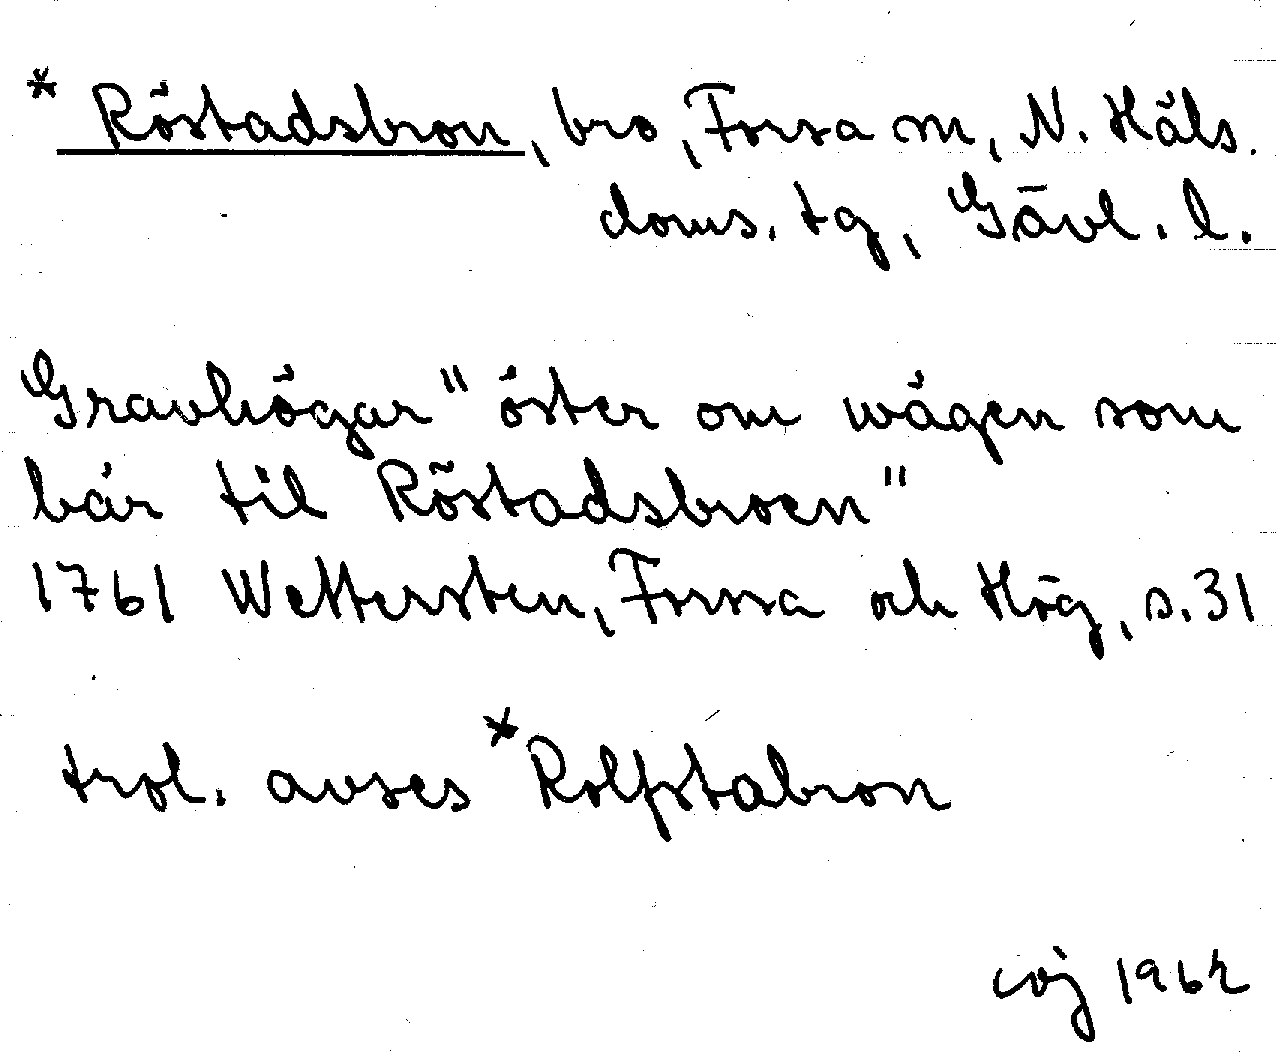 * Röstadsbron, bro, Forsa sn, N. Häls.
doms. tg, Gävl. l.
Gravhögar "öster om wägen som
bär til Röstadsbroen"
1761 Wettersten, Forssa och Hög, s. 31
trol. avses *Rolfstabron
1962